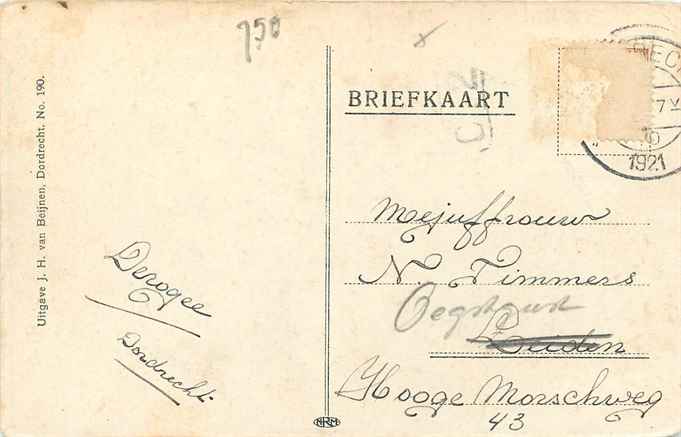 750
BRIEFKAART
7 V
1921
Uitgave J. H. van Beijnen, Dordrecht, No. 190.
Derogee
Dordrecht
Mejuffrouw
N. Timmers
Oegstgeest
Leiden
Hooge Morschweg
43
NRM